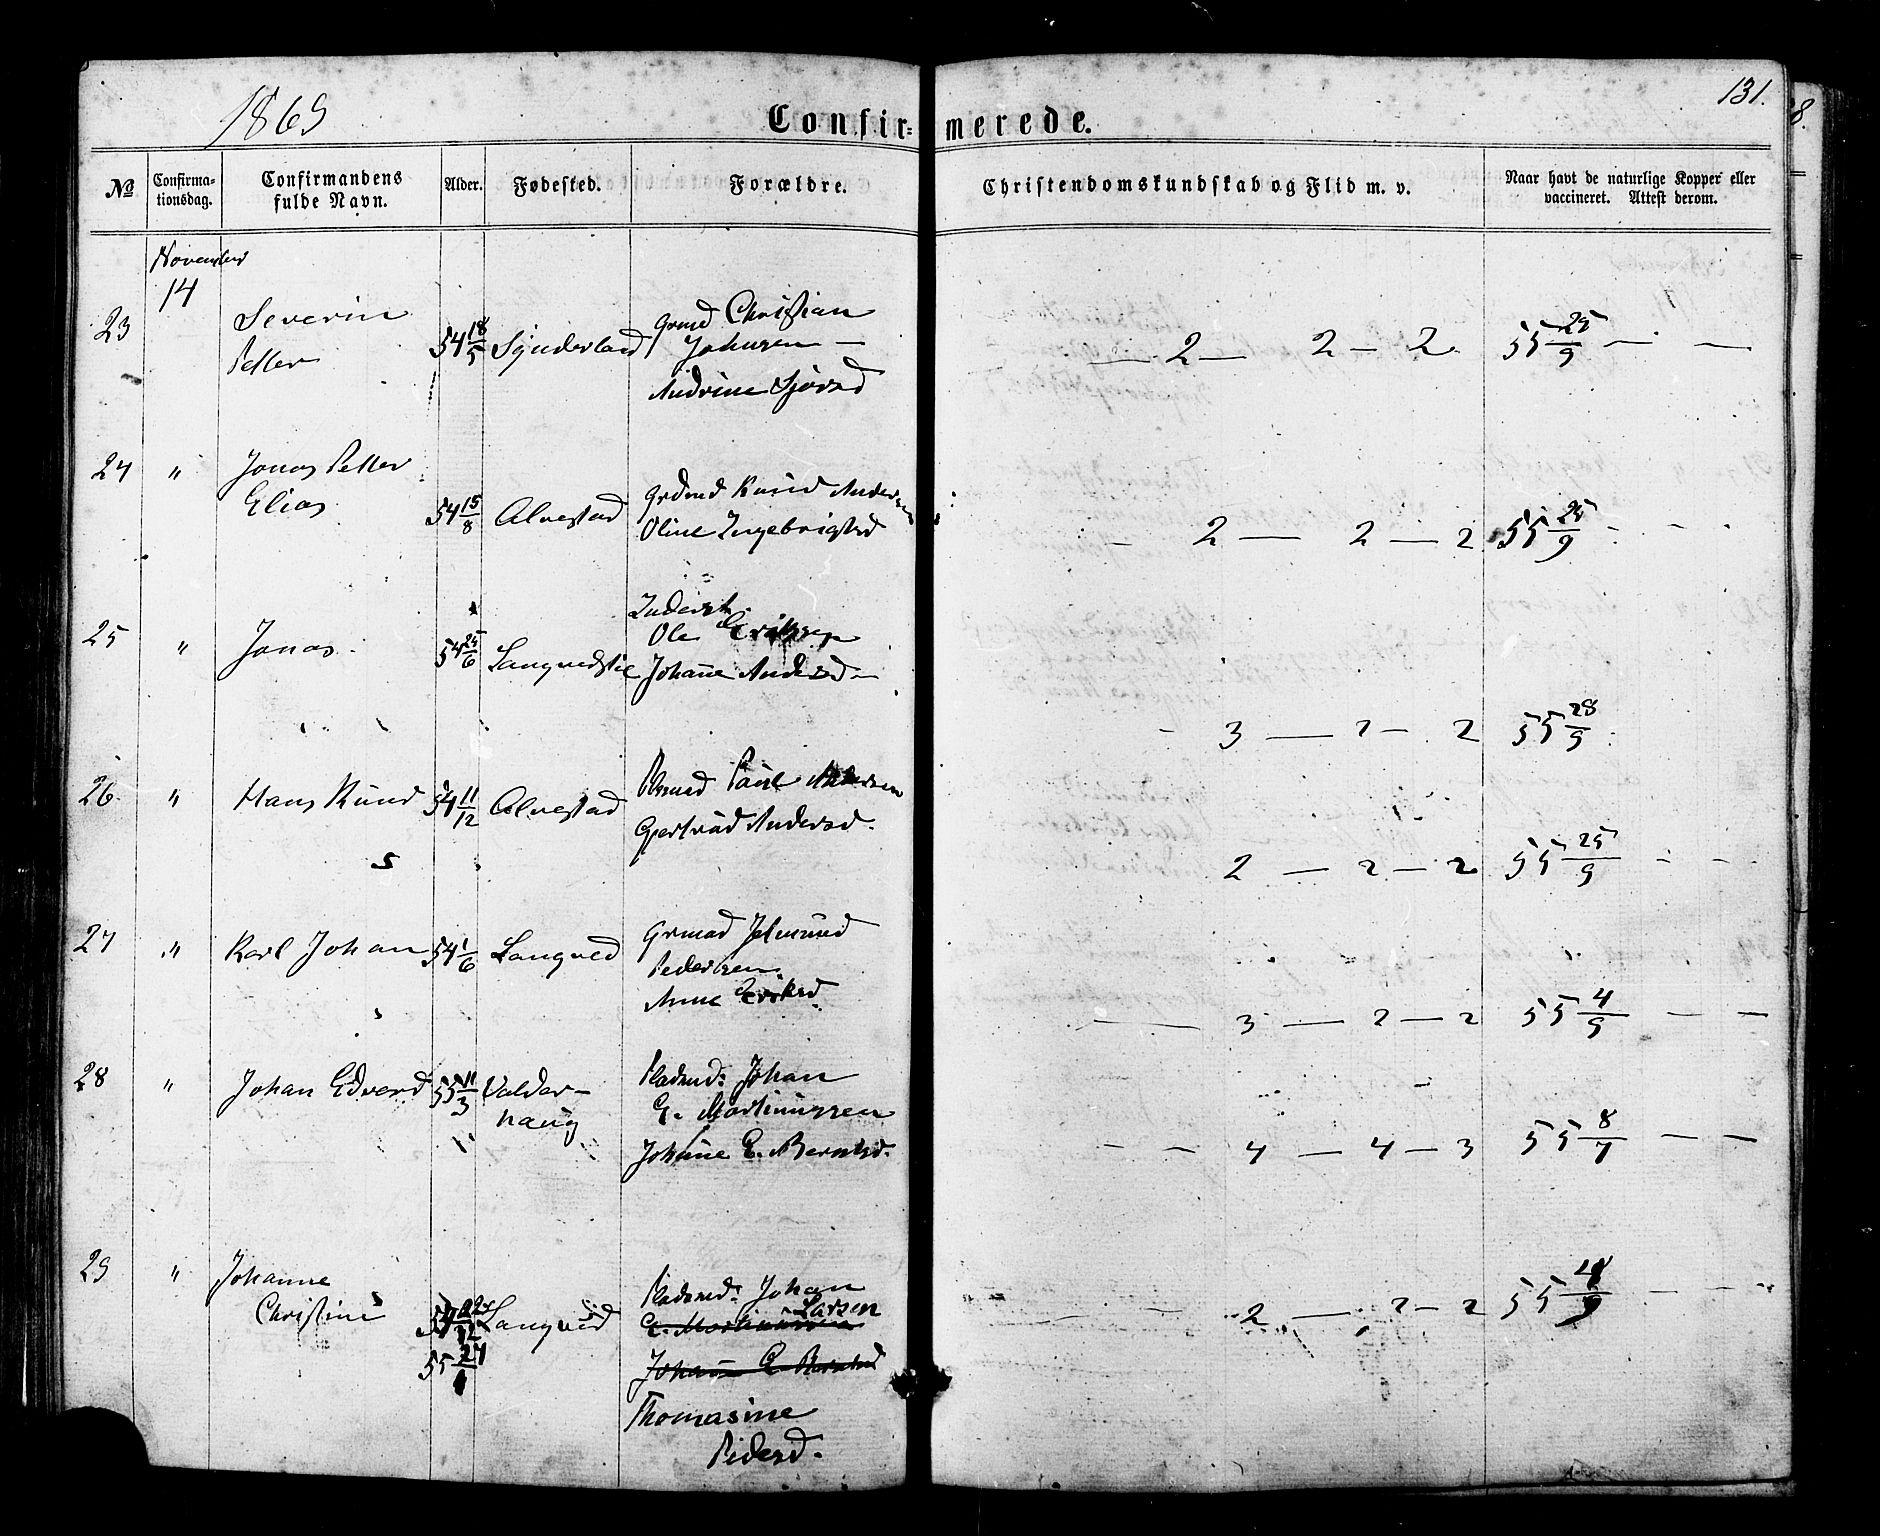 1869 Confirmerede. 131.
No Confirmationsdag. Confirmandens fulde Navn. Alder. Fødested. Forældre. Christendomskundskab og Flid m. v. Naar havt de naturlige Kopper eller vaccineret. Attest derom.
November
14
23 Severin 54 18/5 Synderland Grmd Christian
Petter Johnsen — — 2 — 2 — 2 55 25/9 — —
Andrine Sjursd
24 " Jonas Petter
Elias 54 15/8 Alvestad Grdmd Knud Andersen
Oline Ingebrigtsd — 2 — 2 — 2 55 25/9 - - -
25 " Jonas 54 25/6 Langvedstie Inderst
Ole Eriksen
Johane Andersd — - 3 — 2 — 2 55 28/9
26 " Hans Knud 54 11/12 Alvestad Plsmd Paul Andersen
Gjertrud Andersd. 2 — 2 — 2 55 25/9 - -
27 " Karl Johan 54 1/6 Langved Grmad
Pedersen
Anne Eriksd. — 3 — 2 — 2 55 4/9 — —
28 " Johan Edvard 55 11/3 Valder-
haug Pladsmd: Johan
E. Martinussen
Johane E. Berntsd. - - 4 — 4 — 3 55 8/7 — —
29 " Johanne
Christine 54 22/12 Langved Pladsmd: Johan
Larsen
E. Martinussen
55 27/1 Johane E. Berntsd - - 2 — 2 — 2 55 - -
Thomasine
Pedersd.